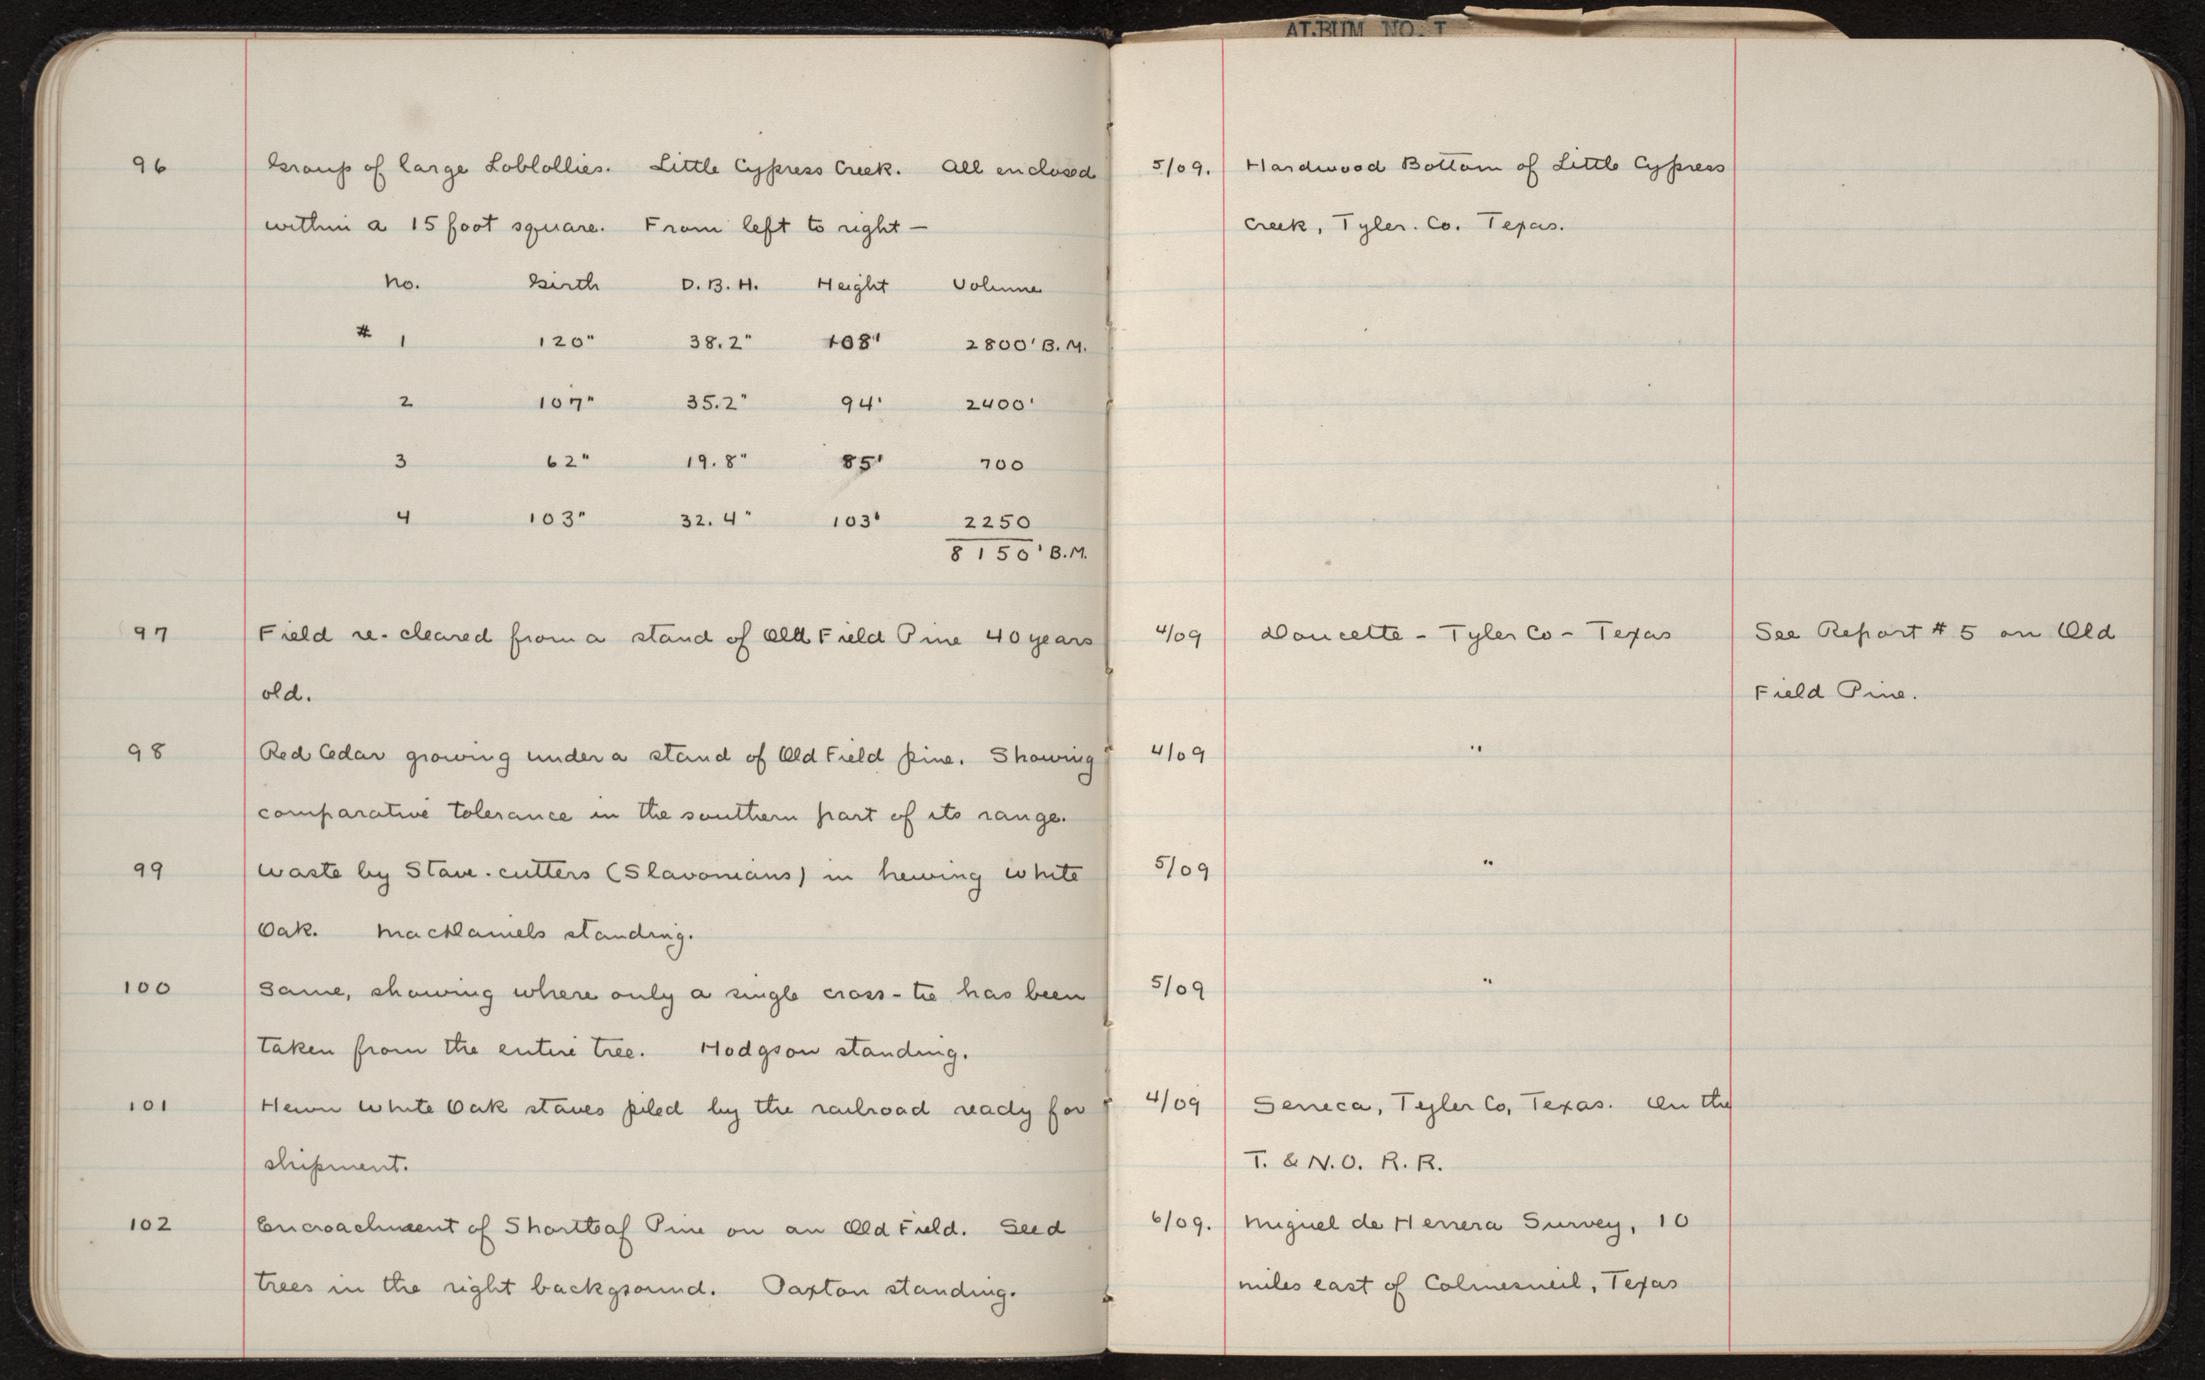 ALBUM NO. I
96 Group of large Loblollies. Little Cypress Creek. All enclosed 5/09. Hardwood Bottom of Little Cypress
within a 15 foot square. From left to right — Creek, Tyler. Co. Texas.
No. Girth D.B.H. Height Volume
# 1 120" 38.2" 108' 2800' B.M.
2 107" 35.2" 94' 2400'
3 62" 19.8" 85' 700
4 103" 32.4" 103' 2250
8150' B.M.
97 Field re-cleared from a stand of Old Field Pine 40 years 4/09 Doucette - Tyler Co - Texas See Report # 5 on Old
old. Field Pine.
98 Red Cedar growing under a stand of Old Field pine. Showing 4/09 "
comparative tolerance in the southern part of its range.
99 Waste by Stave-cutters (Slavonians) in hewing White 5/09 "
Oak. MacDaniels standing.
100 Same, showing where only a single cross-tie has been 5/09 "
taken from the entire tree. Hodgson standing.
101 Hewn White Oak staves piled by the railroad ready for 4/09 Seneca, Tyler Co, Texas. On the
shipment. T. & N.O. R.R.
102 Encroachment of Shortleaf Pine on an Old Field. Seed 6/09. Miguel de Herrera Survey, 10
trees in the right background. Paxton standing. miles east of Colmesneil, Texas